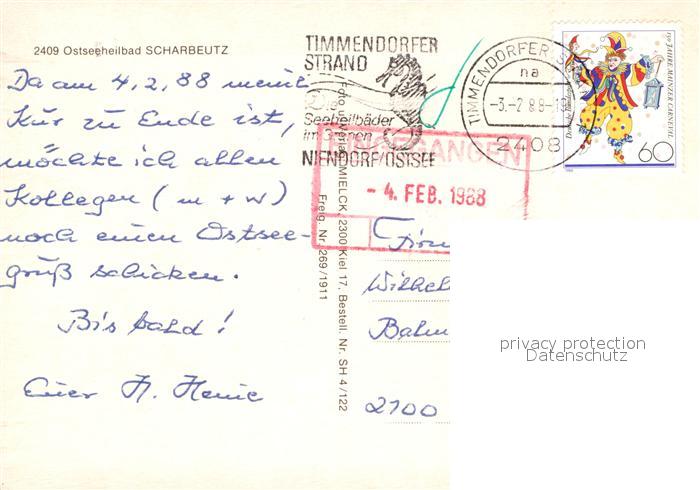 2409 Ostseeheilbad SCHARBEUTZ
Da am 4,2,88 meine
Kur zu Ende ist,
möchte ich allen
Kollegen (m + w)
noch einen Ostsee-
gruß schicken.
Bis bald!
Euer H.
TIMMENDORFER
STRAND
Die
Seeheilbäder
im Grünen
NIENDORF/OSTSEE
TIMMENDORFER
na
-3.-2.88-1
2408
150 JAHRE MAINZER CARNEVAL
Deutsche Bundespost
60
EINGEGANGEN
- 4. FEB. 1988
Foto u. Verlag MIELCK, 2300 Kiel 17, Bestell. Nr. SH 4/122
Freig. Nr. 269/1911
Firm
Wilhel
2100
privacy protection
Datenschutz